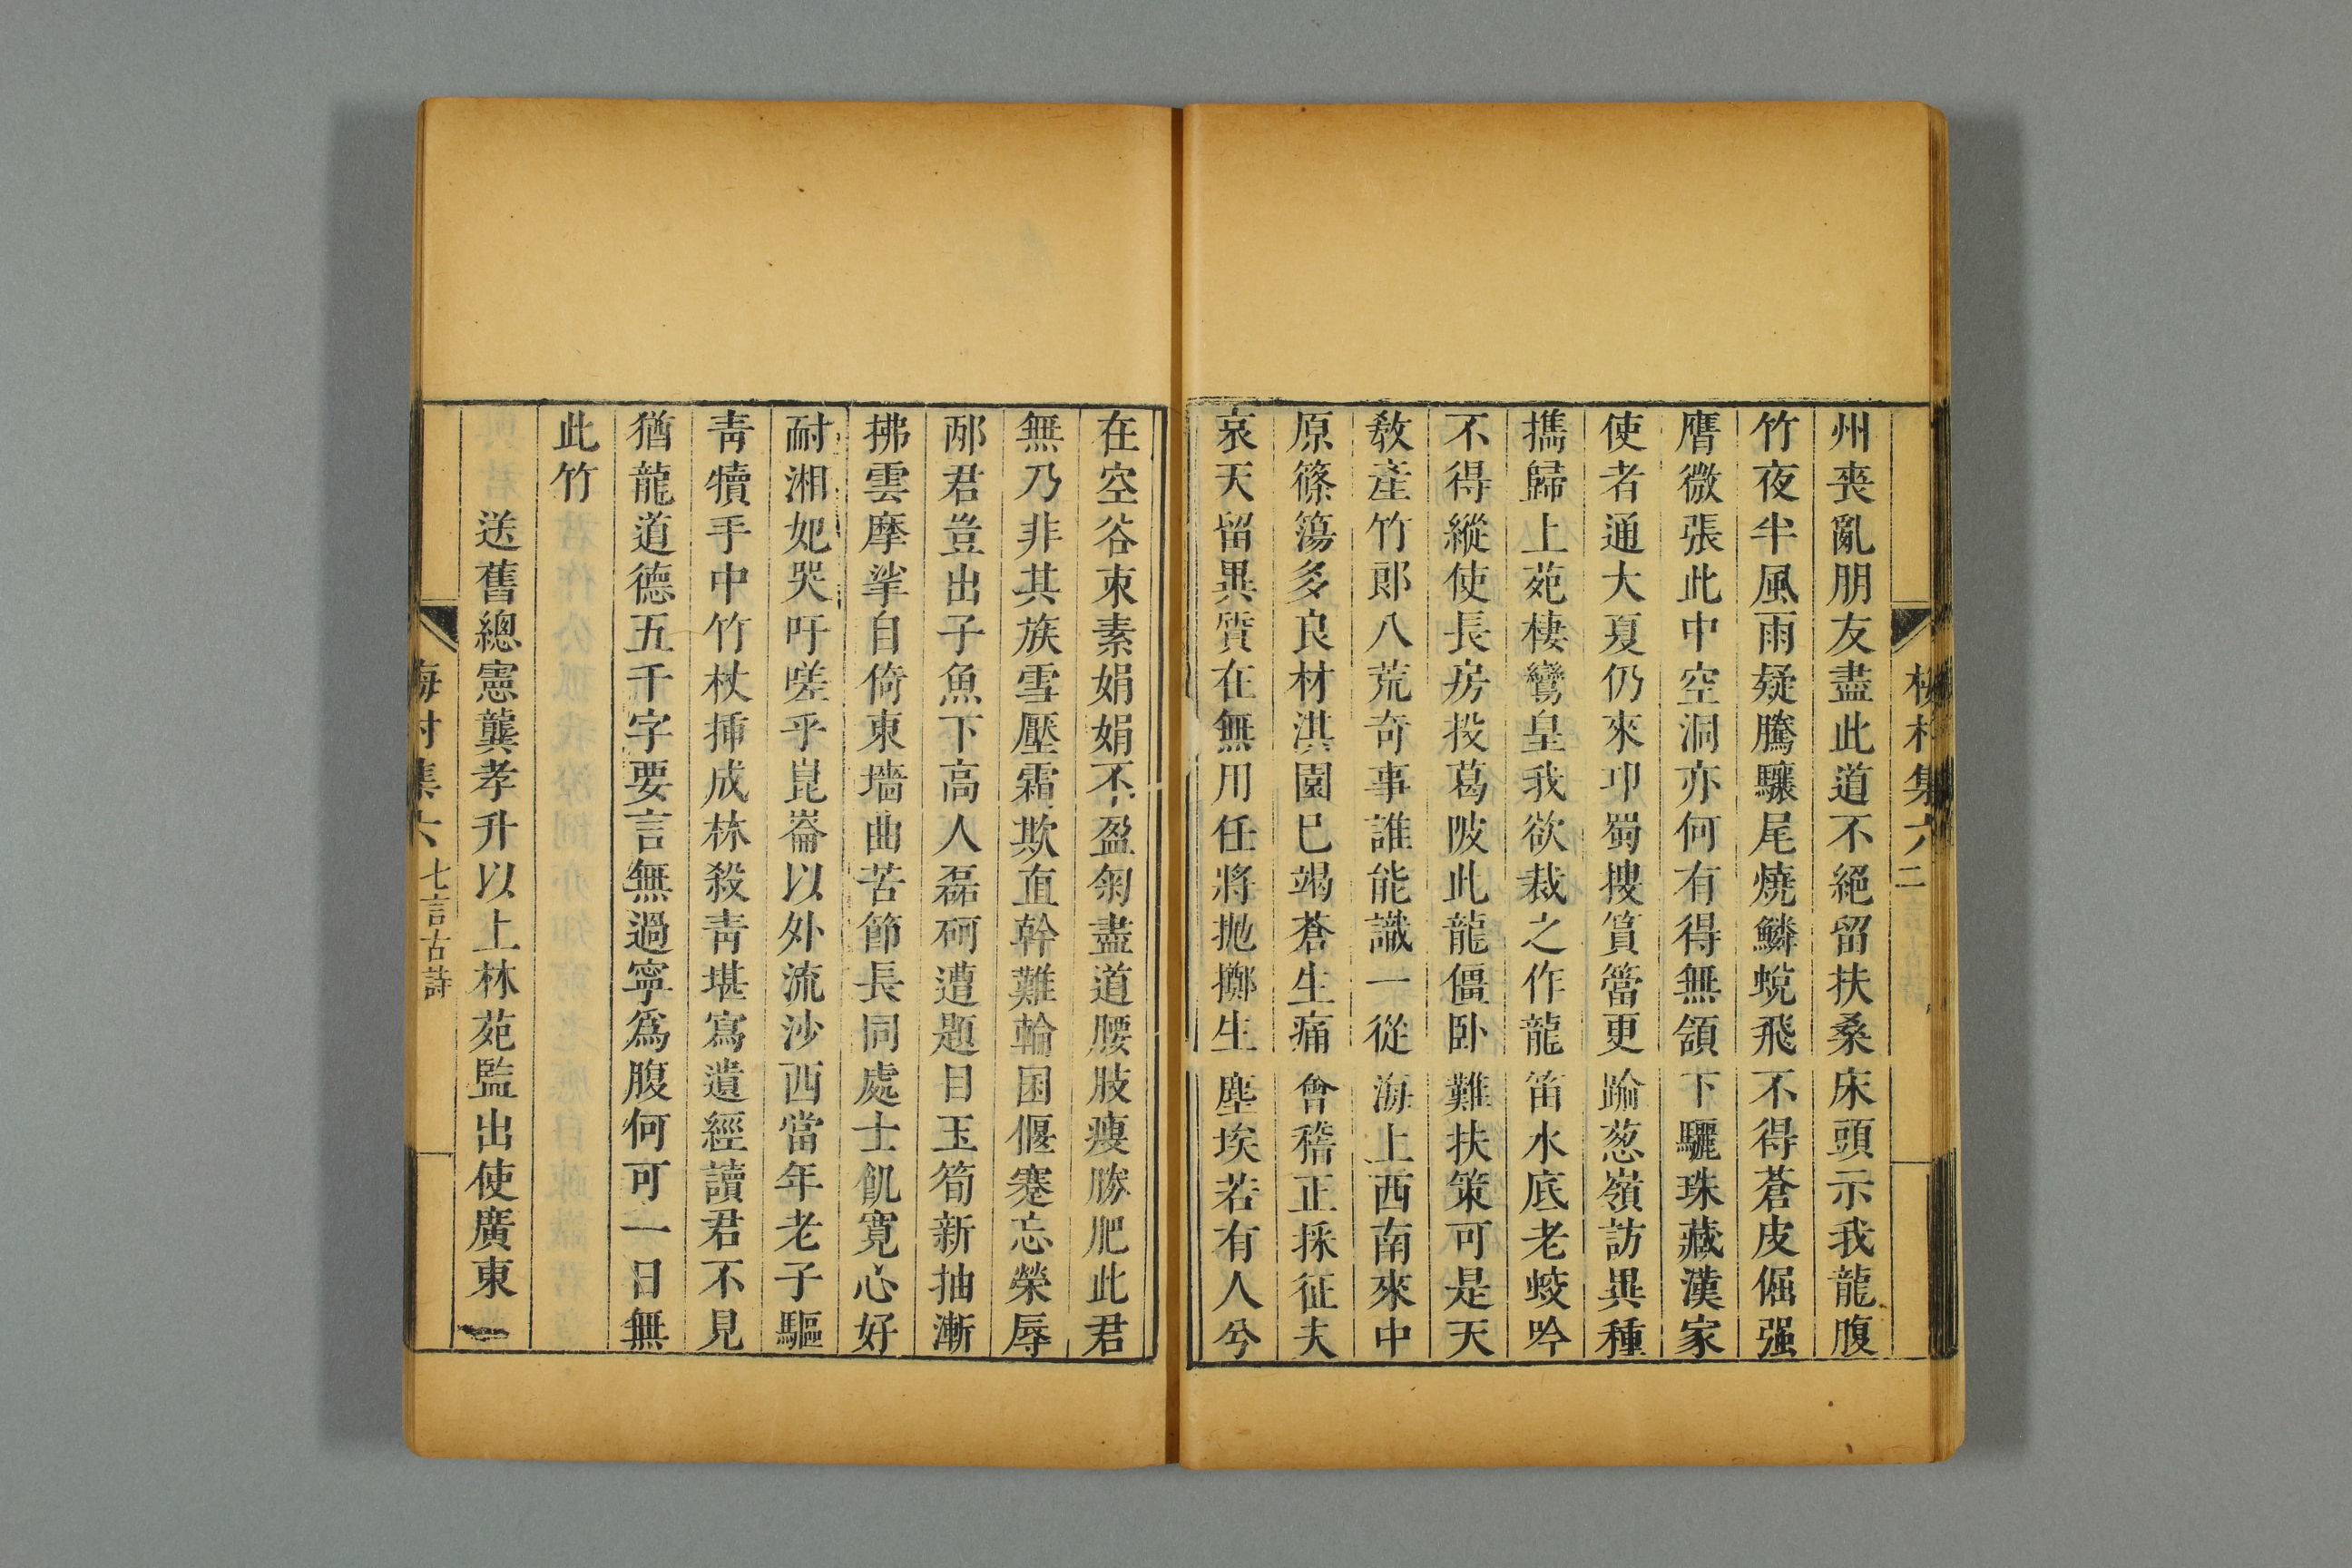 梅村集六 二
州喪亂朋友盡此道不絕留扶桑床頭示我龍腹
竹夜半風雨疑騰驤尾燒鱗蛻飛不得蒼皮倔强
鷹微張此中空洞亦何有得無頷下驪珠藏漢家
使者通大夏仍來卭蜀搜篔簹更踰葱嶺訪異種
攜歸上苑棲鸞皇我欲裁之作龍笛水底老蛟吟
不得縱使長房投葛陂此龍僵卧難扶策可是天
敎產竹郎八荒奇事誰能識一從海上西南來中
原篠簜多良材淇園巳竭蒼生痛會稽正採征夫
哀天留異質在無用任將抛擲生塵埃若有人兮
在空谷束素娟娟不盈匊盡道腰肢瘦勝肥此君
無乃非其族雪壓霜欺直幹難輪囷偃蹇忘榮辱
邴君豈出子魚下高人磊砢遭題目玉筍新抽漸
拂雲摩挲自倚東墻曲苦節長同處士飢寬心好
耐湘妃哭吁嗟乎崑崙以外流沙西當年老子驅
靑犢手中竹杖挿成林殺靑堪寫遺經讀君不見
猶龍道德五千字要言無過寧爲腹何可一日無
此竹
送舊總憲龔孝升以上林苑監出使廣東
梅村集六 七言古詩